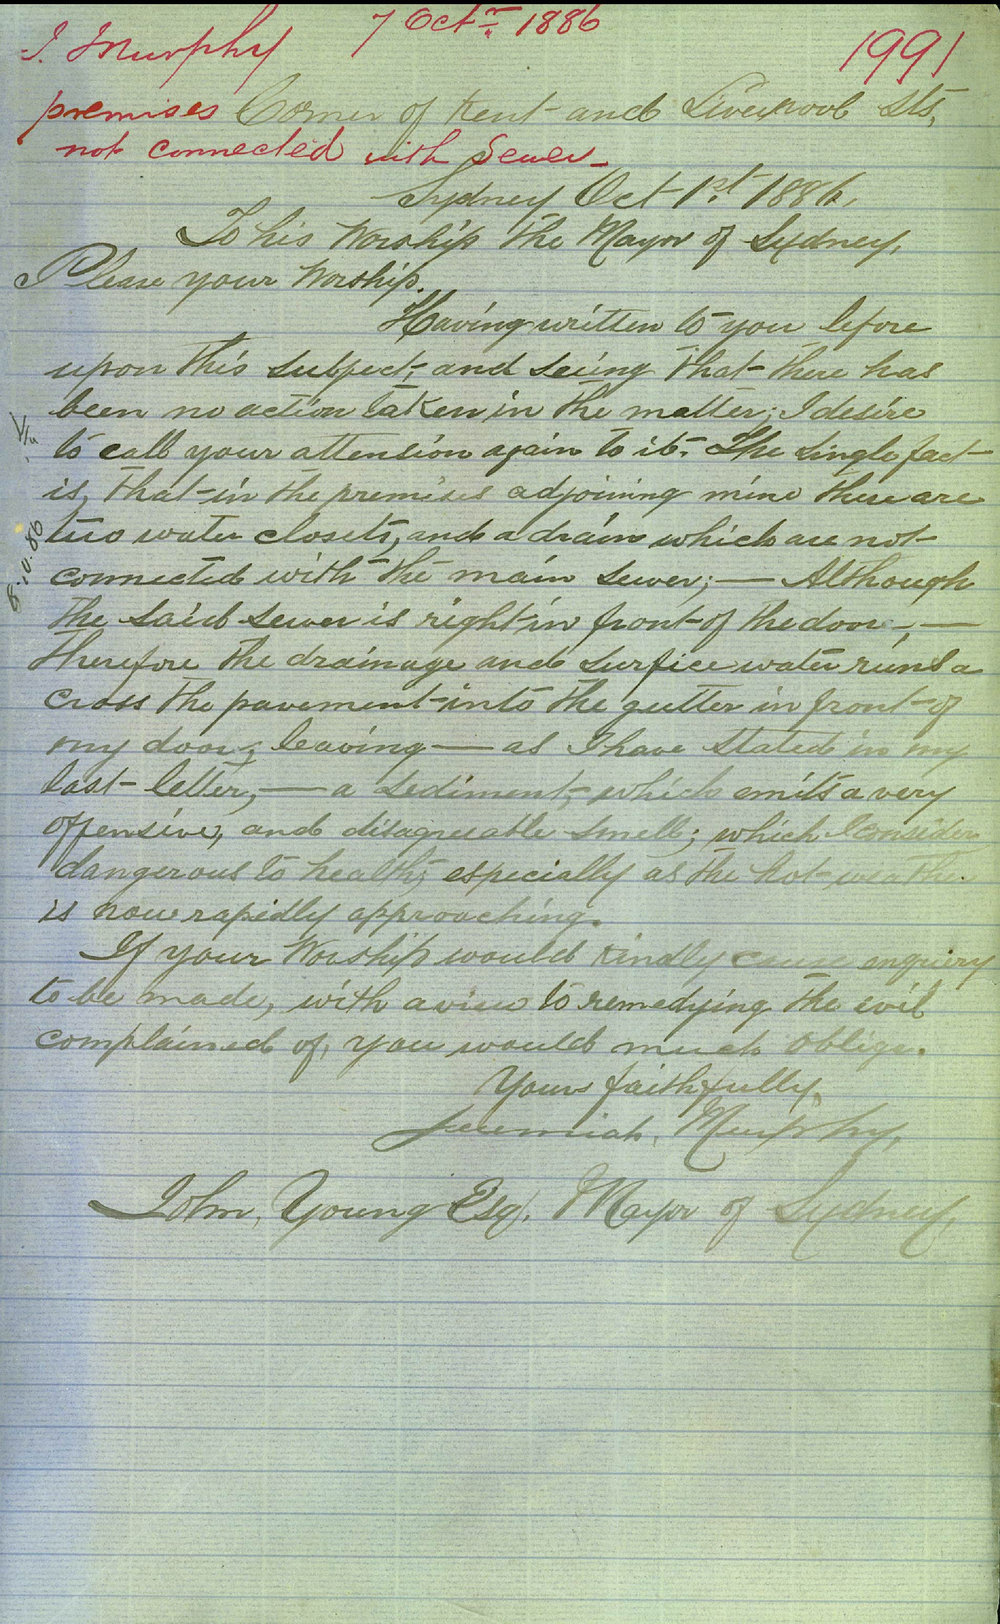 J. Murphy 7 Octr 1886
1991
premises Corner of Kent and Liverpool Sts,
not connected with Sewer -
Sydney Oct 1st 1886,
To his Worship the Mayor of Sydney,
Please your Worship.
Having written to you before
upon this subject, and seeing that there has
been no action taken in the matter; I desire
to call your attension again to it. The single fact
is, that in the premises adjoining mine there are
two water closets, and a drain which are not
connected with the main sewer; — Although
the said sewer is right in front of the door —, —
therefore the drainage and surfice water runs a
cross the pavement into the gutter in front of
my door; leaving — as I have stated in my
last letter, — a sediment, which emits a very
offensive, and disagreeable smell; which I consider
dangerous to health, especially as the hot weather
is now rapidly approaching.
If your Worship would kindly cause enquiery
to be made, with a view to remedying the evil
complained of, you would much oblige.
Yours faithfully,
Jeremiah, Murphy,
John, Young Esq. Mayor of Sydney,
8.10.86